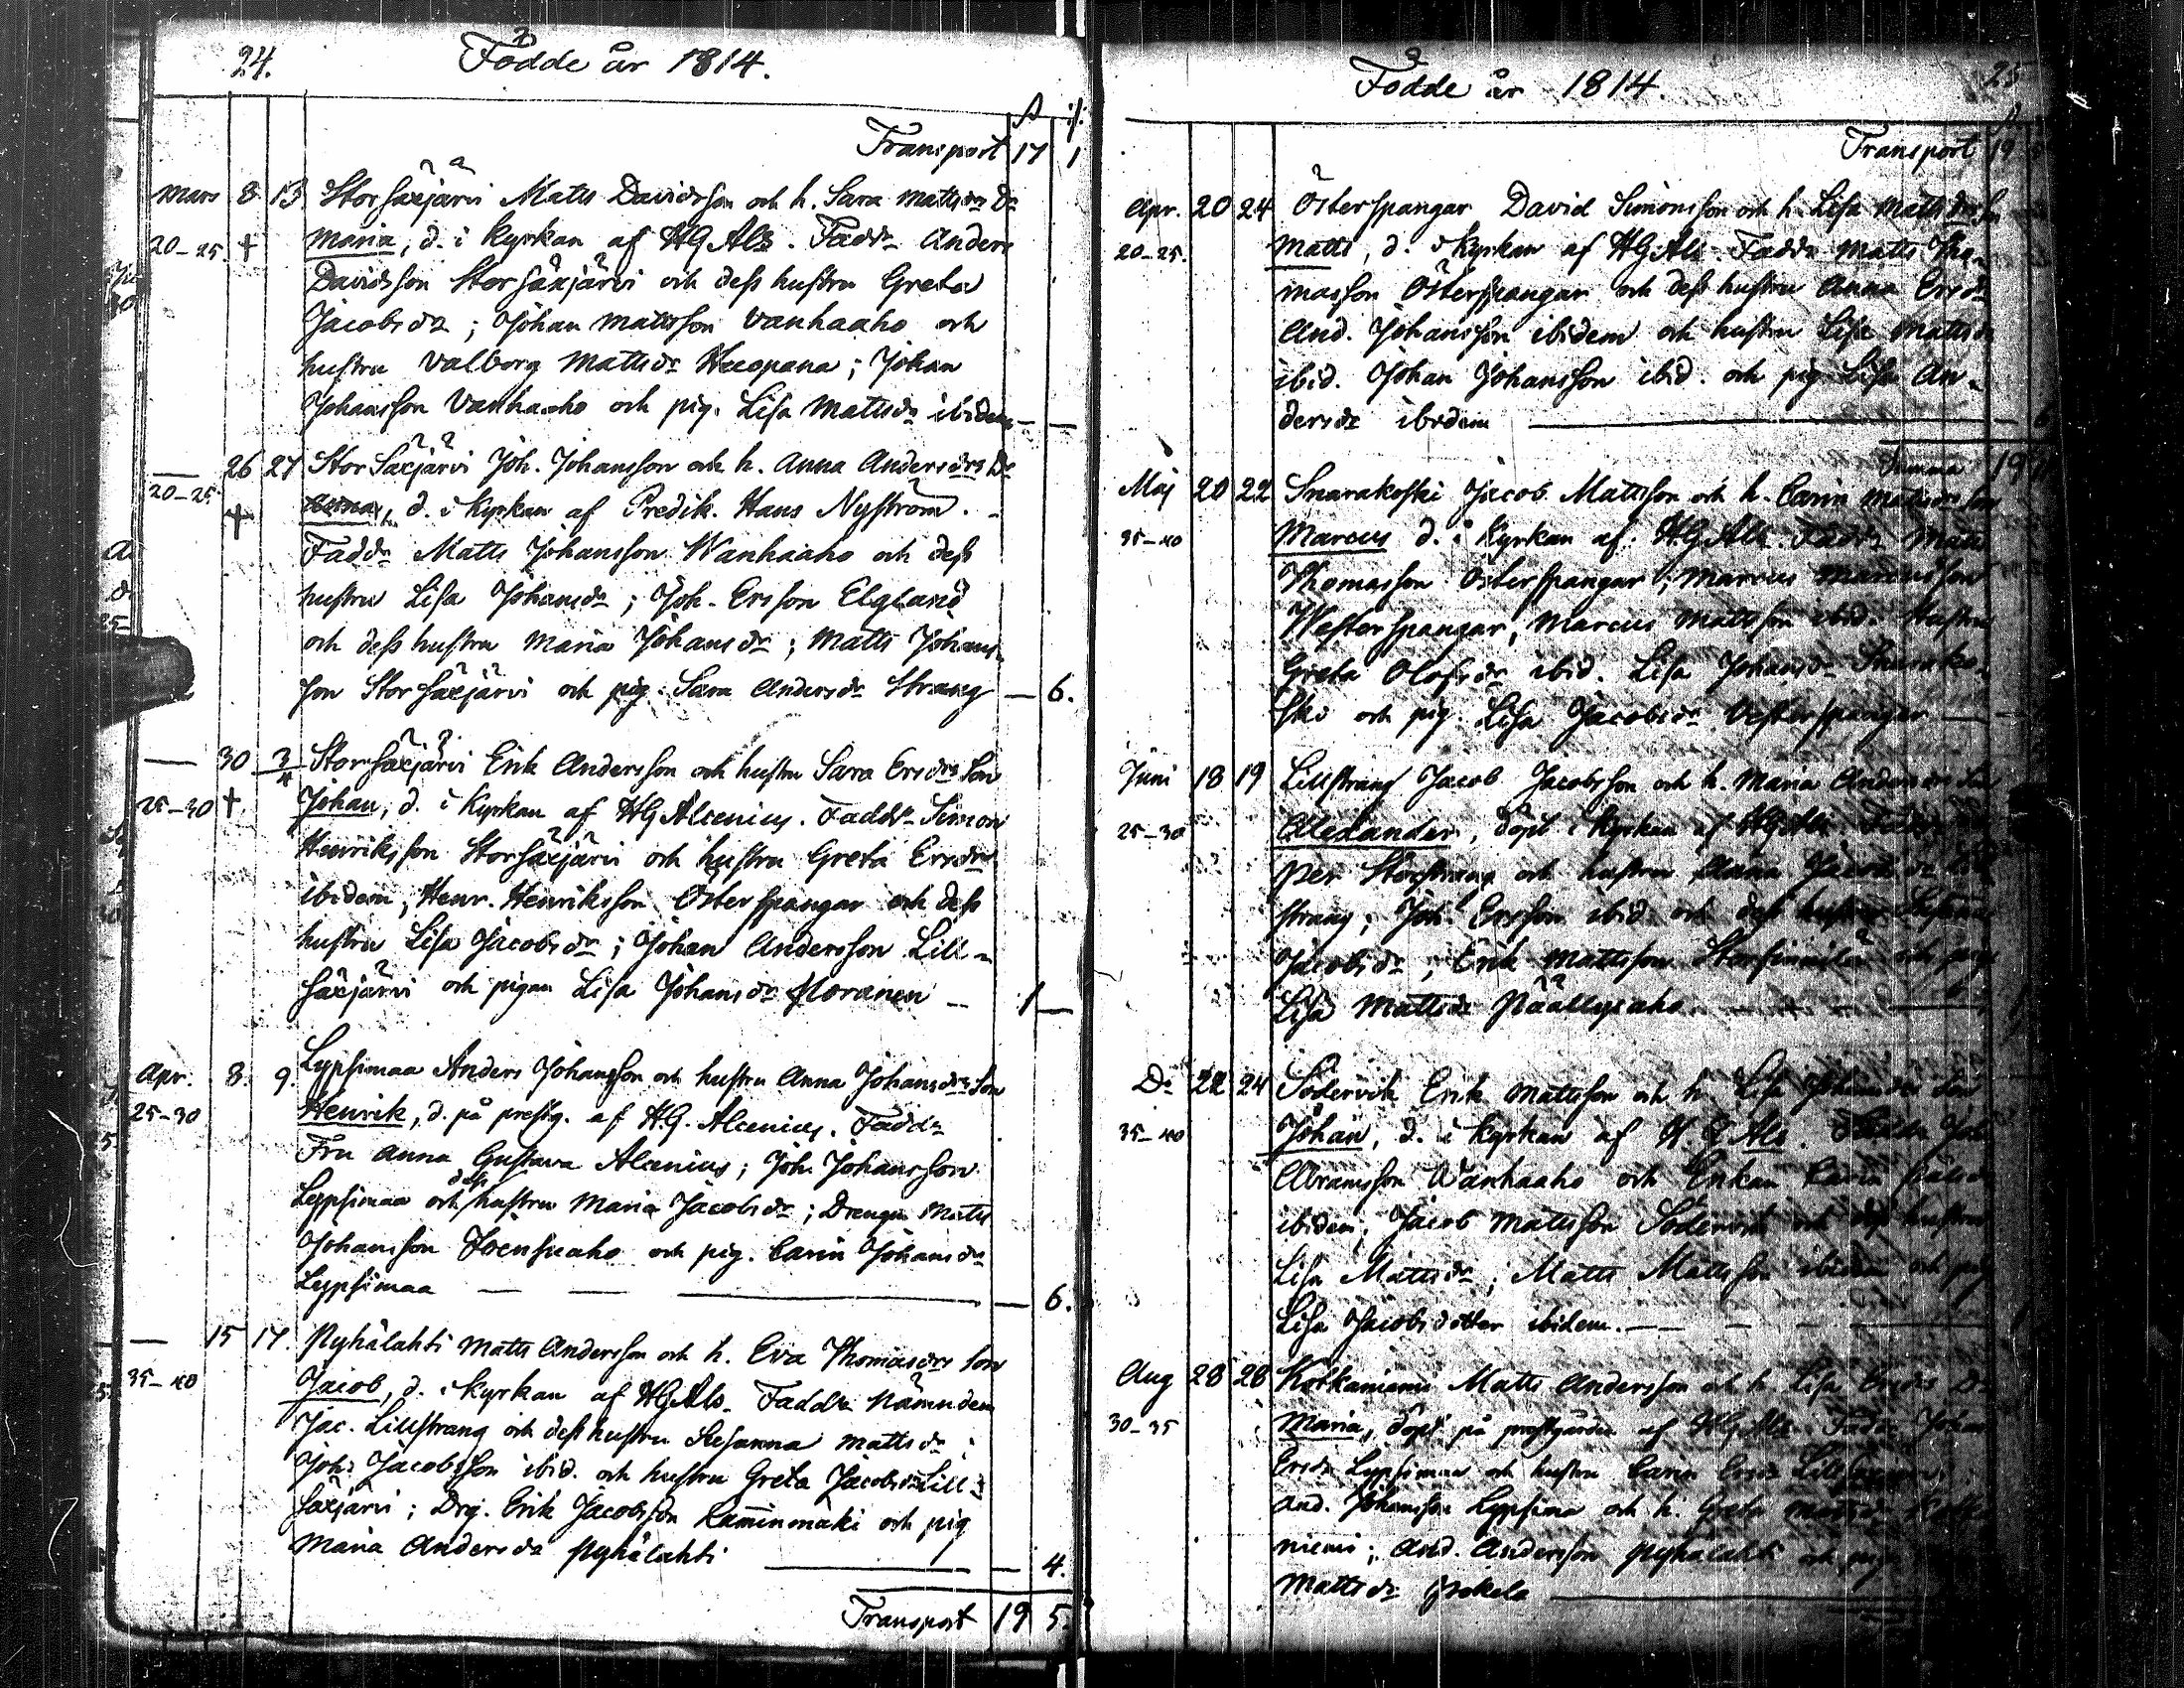 24. Födde år 1814.
Transport 17 1
Mars 8 13 Storsäxjärvi Matts Davidsson och h. Sara Mattsdrs Dr
20-25. † Maria, d. i Kyrkan af HGAls. Faddr Anders
Davidsson Storsäxjärvi och dess hustru Greta
Jacobsdr; Johan Mattsson Vanhaaho och
hustru Valborg Mattsdr Heeopana; Johan
Johansson Vanhaaho och pig. Lisa Mattsdr ibidem — —
— 26 27 Stor Säxjärvi Joh. Johansson och h. Anna Andersdrs Dr
20-25. † Anna, d. i Kyrkan af Predik. Hans Nyström.
Faddr Matts Johansson Wanhaaho och dess
hustru Lisa Johansdr; Joh. Ersson Elgland
och dess hustru Maria Johansdr; Matts Johans-
son Storsäxjärvi och pig. Sara Andersdr Strang — 6.
— 30 3/4 Storsäxjärvi Erik Andersson och hustru Sara Ersdrs Son
25-30 † Johan, d. i Kyrkan af HGAlcenius. Faddr Simon
Henriksson Storsäxjärvi och hustru Greta Ersdr
ibidem; Henr. Henriksson Österspangar och dess
hustru Lisa Jacobsdr; Johan Andersson Lill-
säxjärvi och pigan Lisa Johansdr Moranen — 1 —
Apr. 8. 9. Lypsimaa Anders Johansson och hustru Anna Johansdrs Son
25-30 Henrik, d. på prestg. af H.G. Alcenius. Faddr
Fru Anna Gustava Alcenius; Joh. Johansson
Lypsimaa och dess hustru Maria Jacobsdr; Drengen Matts
Johansson Joensuaho och pig. Carin Johansdr
Lypsimaa — — — — 6.
— 15 17. Pyhälahti Matts Andersson och h. Eva Thomasdrs Son
35-40 Jacob, d. i Kyrkan af HGAls. Faddr Nämndem
Jac. Lillstrang och dess hustru Susanna Mattsdr;
Joh. Jacobsson ibid. och hustru Greta Jacobsdr Lill-
säxjärvi; Drg. Erik Jacobsson Kaminmäki och pig
Maria Andersdr Pyhälahti — — 4.
Transport 19 5.
Födde år 1814. 25
Transport 19
Apr. 20 24 Österspangar David Simonsson och h. Lisa Mattsdrs Son
20-25. Matts, d. i Kyrkan af HGAls. Faddr Matts Tho-
masson Österspangar och dess hustru Anna Ersdr
And. Johansson ibidem och hustru Lisa Mattsdr
ibid. Johan Johansson ibid. och pig Lisa An-
dersdr ibidem — — 6
Summa 19
Maj 20 22 Snarakoski Jacob Mattsson och h. Carin Mattsdrs Son
35-40 Marcus d. i Kyrkan af HGAls. Faddr Matts
Thomasson Österspangar; Marcus Marcusson
Westerspangar, Marcus Mattsson ibid. Hustru
Greta Olofsdr ibid. Lisa Johansdr Snarako-
ski och pig. Lisa Jacobsdr Vesterspangar —
Juni 18 19 Lillstrang Jacob Jacobsson och h. Maria Andersdrs Son
25-30 Alexander, döpt i Kyrkan af HGAls. Faddr
Per Storstrang och hustru Anna Jacobsdr
strang; Joh. Ersson ibid. och dess hustru Susanna
Jacobsdr; Erik Mattsson och pig
Lisa Mattsdr Päällysaho —
Dr 22 24 Södervik Erik Mattsson och h. Lisa Johansdrs Son
35-40 Johan, d. i Kyrkan af H.G.Als. Faddr Joh.
Abramsson Wanhaaho och Enkan Carin
ibidem; Jacob Mattsson Södervik och dess hustru
Lisa Mattsdr; Matts Mattsson ibidem och pig
Lisa Jacobsdotter ibidem. — — —
Aug 28 28 Kotkaniemi Matts Andersson och h. Lisa Ersdrs Dr
30-35 Maria, döpt på prestgården af HGAls. Faddr Johan
Ersdr Lypsimaa och hustru Carin Ersdr
And. Johansson Lypsima och h. Greta Mattsdr Kotka-
niemi; And. Andersson Pyhälahti och pig
Mattsdr Jokela —